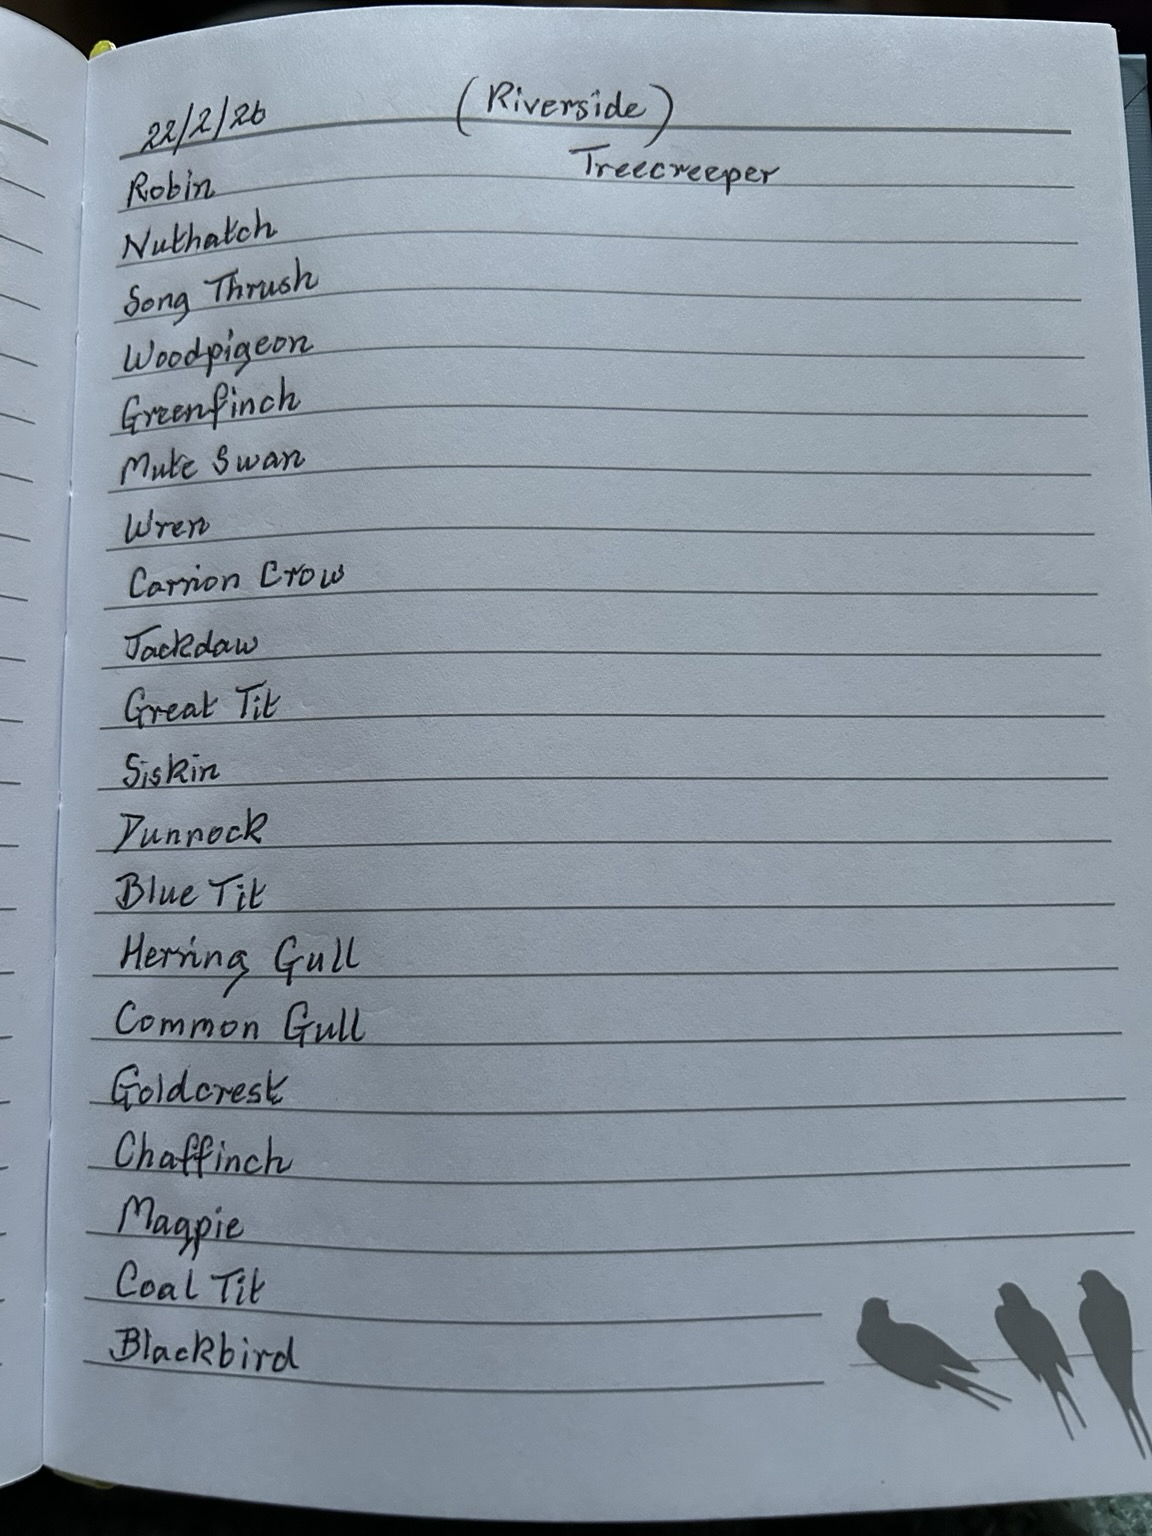 22/2/26 (Riverside)
Robin Treecreeper
Nuthatch
Song Thrush
Woodpigeon
Greenfinch
Mute Swan
Wren
Carrion Crow
Jackdaw
Great Tit
Siskin
Dunnock
Blue Tit
Herring Gull
Common Gull
Goldcrest
Chaffinch
Magpie
Coal Tit
Blackbird